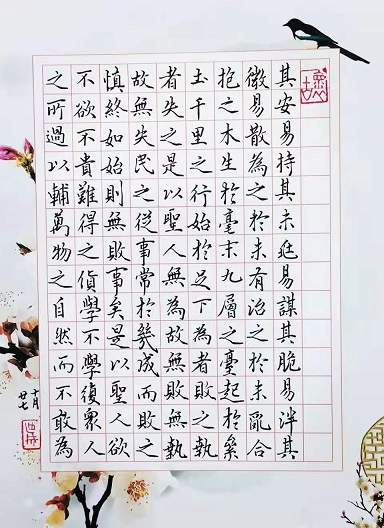 其安易持其未兆易謀其脆易泮其
微易散為之於未有治之於未亂合
抱之木生於毫末九層之臺起於累
土千里之行始於足下為者敗之執
者失之是以聖人無為故無敗無執
故無失民之從事常於幾成而敗之
慎終如始則無敗事矣是以聖人欲
不欲不貴難得之貨學不學復眾人
之所過以輔萬物之自然而不敢為
十月
廿七